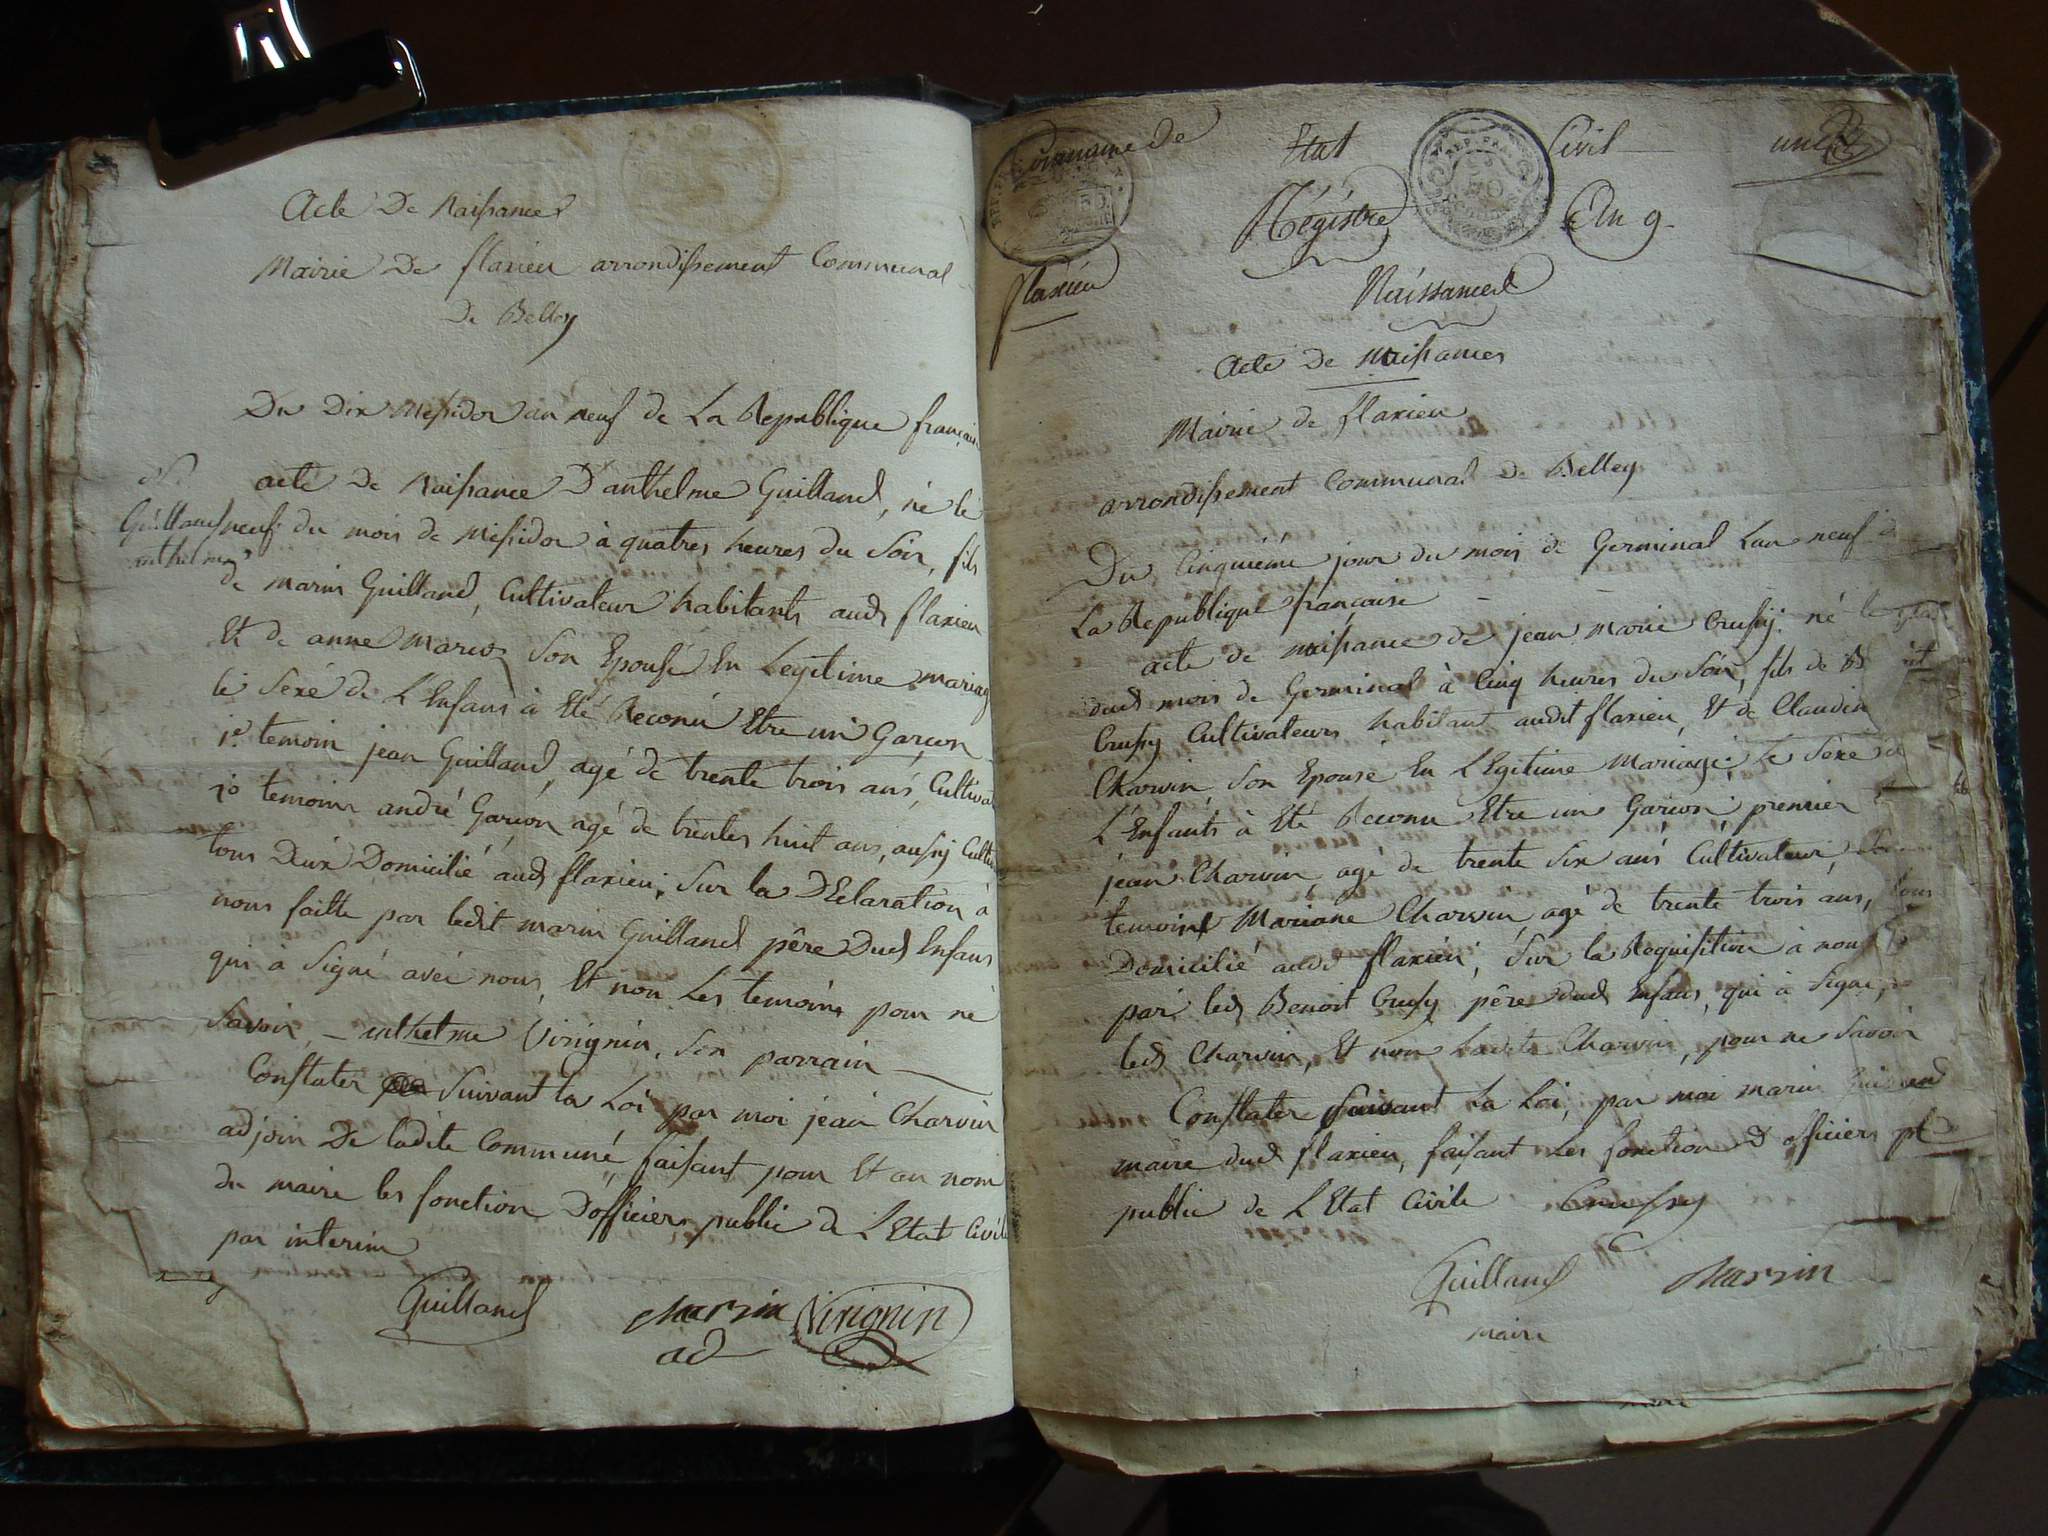 Acte De Naissances
Mairie De flaxieu arrondissement Communal
De Belley
Du Dix Messidor an neuf de La Republique français
acte De Naissance D'anthelme Guilland, né le
Guilland
anthelme
neuf du mois de Messidor à quatres heures du Soir, fils
de marin Guilland, Cultivateur habitants aud flaxieu
Et de anne Son Epouse En Legitime mariag
le Sexe de L'Enfans à Eté Reconu Etre un Garçon
1er temoin jean Guilland, agé de trente trois ans, Cultivat
temoins andré Garçon agé de trentes huit ans, aussy Cultiv
tous Deux Domicilié aud flaxieu; Sur la DEclaration à
nous faitte par ledit marin Guilland père Dud Enfans
qui a Signé avec nous, Et non Les temoins pour ne
Savoir, – anthelme Virignin, Son parrain
Constater Suivant la Loi par moi jean Charvin
adjoin De ladite Commune, faisant pour Et au nom
du maire les fonction D'officiers public de L'Etat Civile
par interim
Guilland Charvin Virignin
ad
Commune De Etat Civil
Régistre An 9.
flaxieu
Naissances
Acte de Naissances
Mairie de flaxieu
arrondissement Communal de Belley
Du Cinquième jour du mois de Germinal Lan neuf d
La Republique française
acte de naissance de jean Marie Crussy né le
dud mois de Germinal à Cinq heures du Soir, fils de
Crussy Cultivateurs habitant audit flaxieu, Et de Claudin
Charvin Son Epouse En LEgitime Mariage; Le Sexe d
L'Enfants à Eté Reconu Etre un Garcon; premier
jean Charvin agé de trente Six ans Cultivateur,
temoins Mariane Charvin, agé de trente trois ans, tous
Domicilié aud flaxieu; Sur la Requisition à nous
par led Benoit Crussy père dud Enfans, qui à Signé,
led Charvin, Et non Ladite Charvin, pour ne Savoir
Constater Suivant La Loi, par moi marin Guilland
maire dud flaxieu, faisant les fonction D'officiers
public de L'Etat Civile Crussy
Guilland Charvin
maire